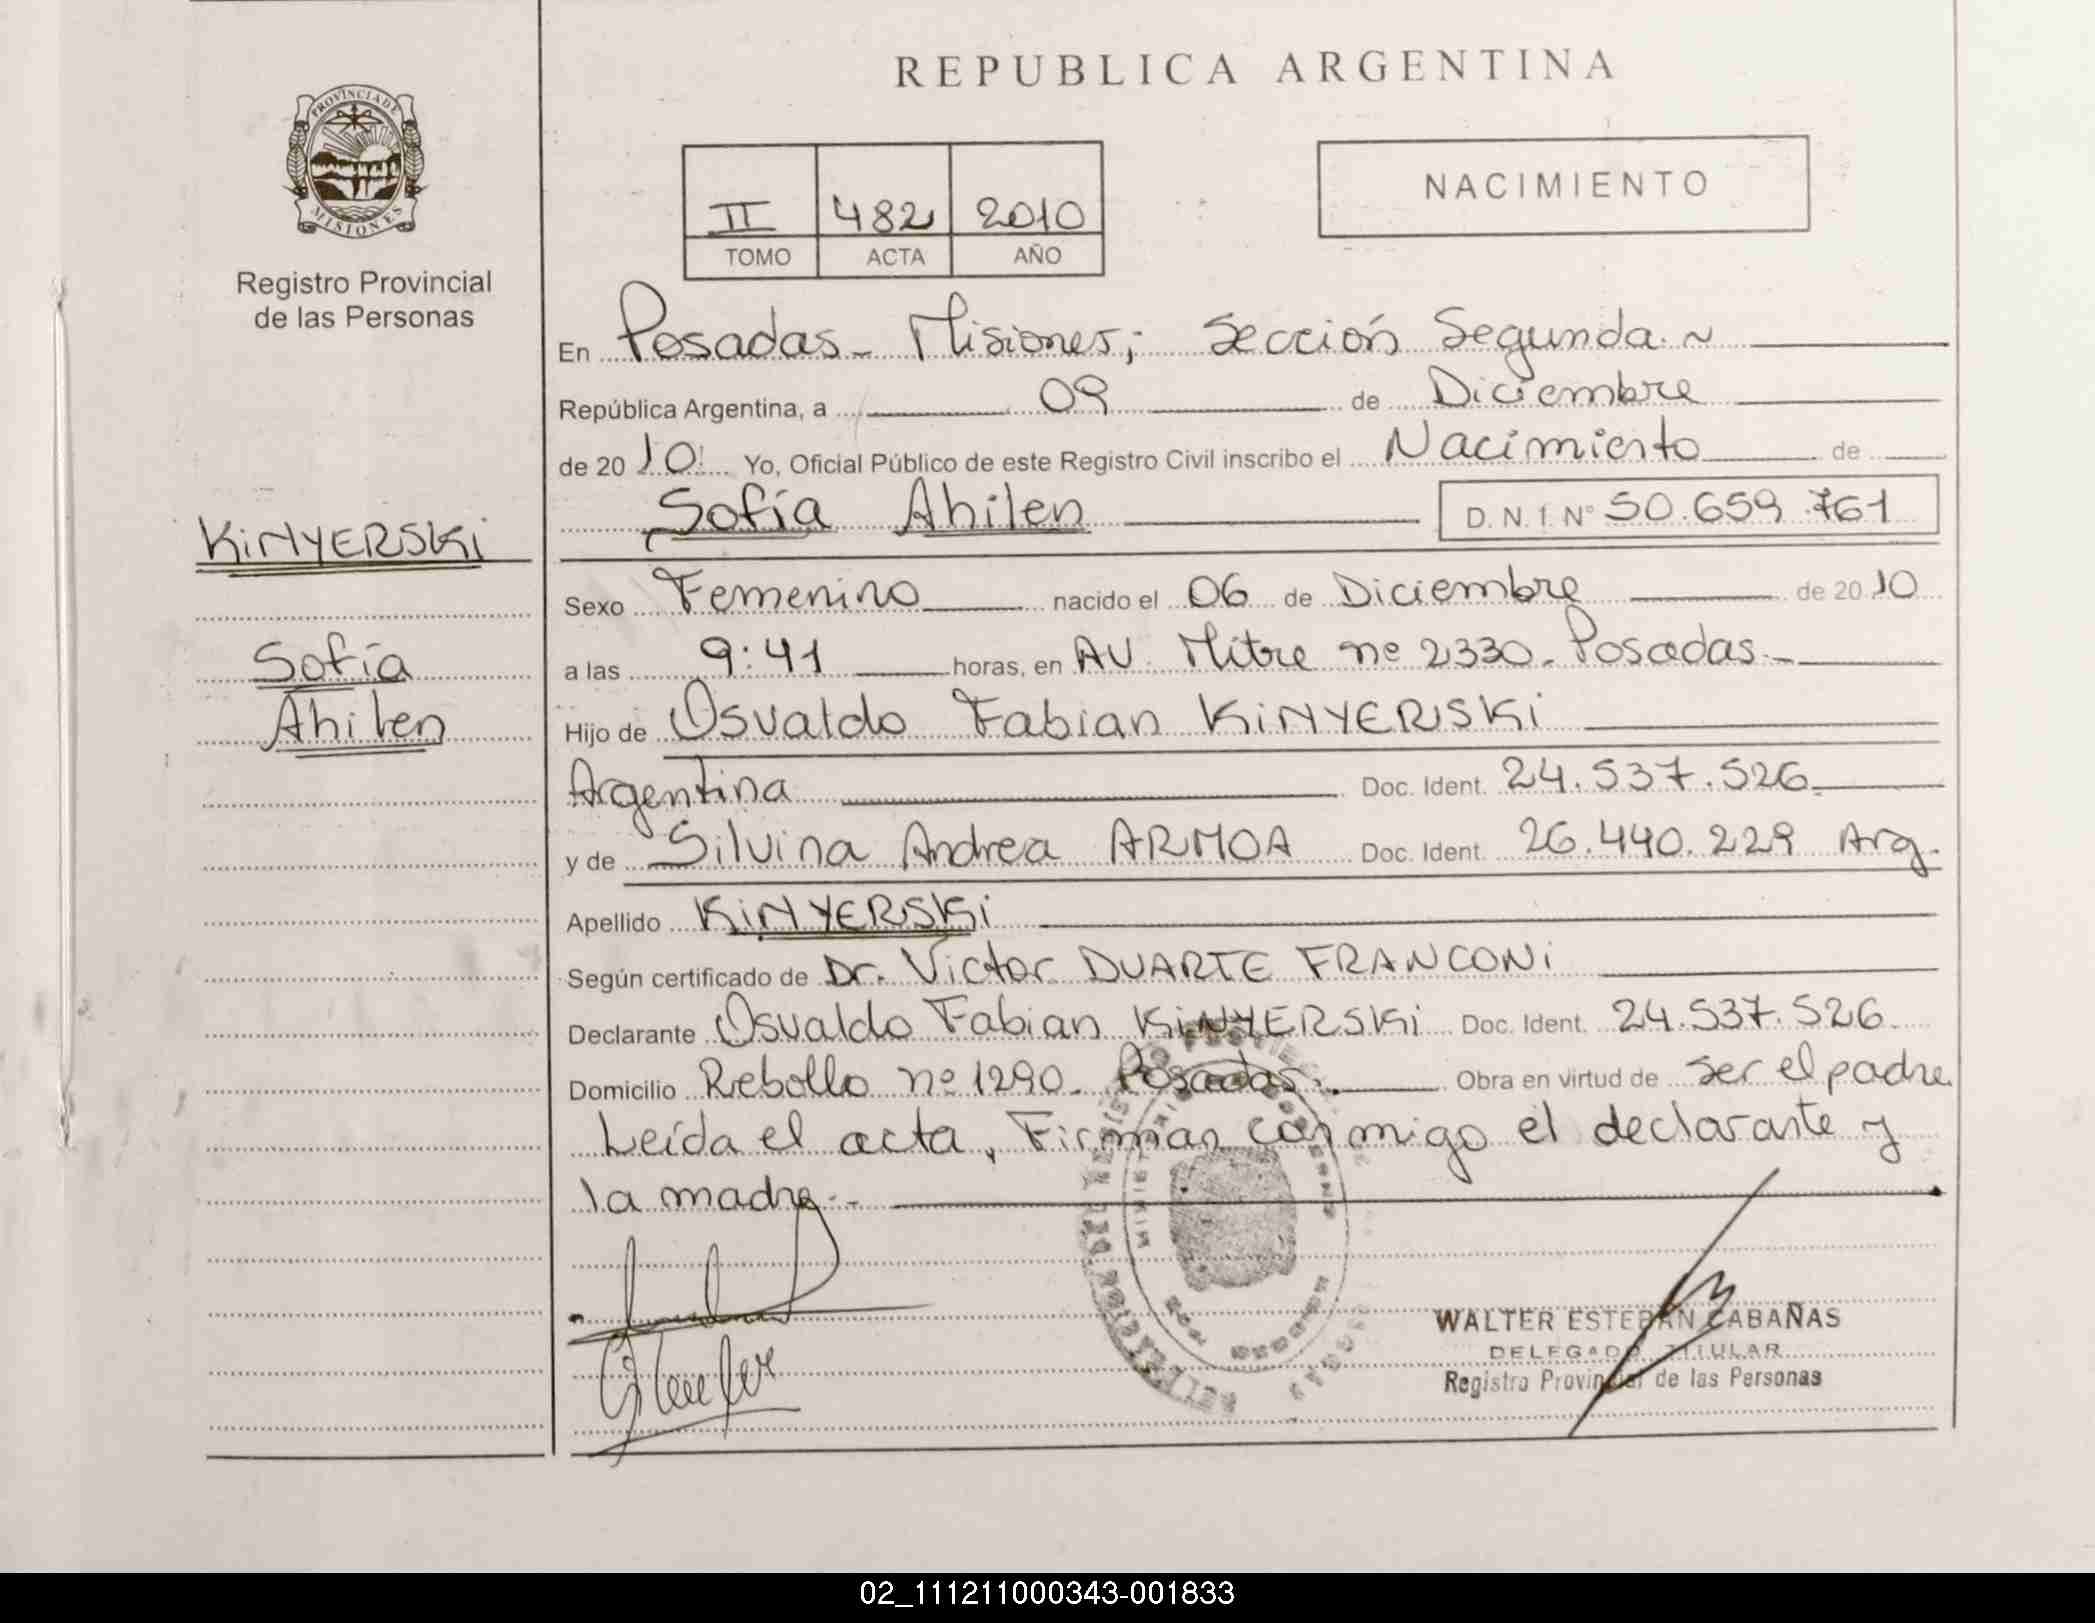 REPUBLICA ARGENTINA
PROVINCIA DE
MISIONES
Registro Provincial
de las Personas
NACIMIENTO
II 482 2010
TOMO ACTA AÑO
En Posadas - Misiones; Sección Segunda. ~
República Argentina, a 09 de Diciembre
de 20 10 Yo, Oficial Público de este Registro Civil inscribo el Nacimiento de
Sofía Ahilen D. N. I. Nº 50.659.761
KiNYERSKi
Sofía
Ahilen
Sexo Femenino nacido el 06 de Diciembre de 20 10
a las 9:41 horas, en AV. Mitre nº 2330. Posadas.-
Hijo de Osvaldo Fabian KiNYERSKi
Argentina Doc. Ident. 24.537.526
y de Silvina Andrea ARMOA Doc. Ident. 26.440.229 Arg.
Apellido KiNYERSKi
Según certificado de Dr. Victor DUARTE FRANCONi
Declarante Osvaldo Fabian KiNYERSKi Doc. Ident. 24.537.526
Domicilio Rebollo nº 1290. Posadas. Obra en virtud de ser el padre.
Leída el acta, Firman conmigo el declarante y
la madre.-
WALTER ESTEBAN CABAÑAS
DELEGADO TITULAR
Registro Provincial de las Personas
02_111211000343-001833